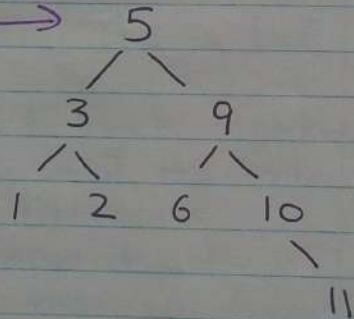 5
3 9
1 2 6 10
11